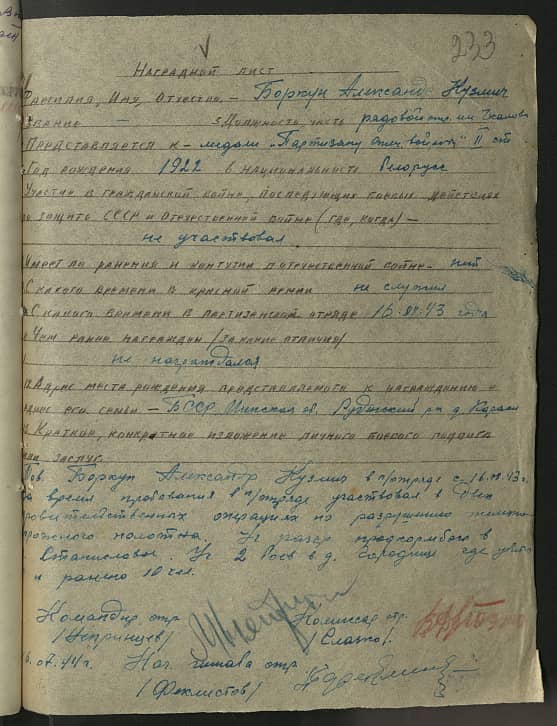 233
Наградной лист
Фамилия, Имя, Отчество – Боркун Александр Кузьмич
Звание – Должность, часть рядовой отр. им Чкалова
Представляется к – медали „Партизану Отеч. войны" II ст
Год рождения 1922 Национальность белорус
Участие в гражданской войне, последующих боевых действиях
по защите СССР и Отечественной войне (где, когда) –
не участвовал
Имеет ли ранения и контузии в отечественной войне – нет
С какого времени в красной армии не служил
С какого времени в партизанском отряде 16.08.43 года
Чем ранее награжден (за какие отличия)
не награждался
Адрес места рождения представляемого к награждению и
адрес его семьи – БССР Минская об. Руденский р-н д.
Краткое, конкретное изложение личного боевого подвига
или заслуг.
Тов. Боркун Александр Кузьмич в п/отряде с 16.08.43 г.
За время пребывания в п/отряде участвовал в двух
операциях по разрушению железно
дорожного полотна. Уч. разгр.
Уч 2 боев в д. где убито
и ранено 10 чел.
Командир отр Комиссар отр.
/Непринцев/ /Слапко/
07.44 г. Нач. штаба отр
/Феклистов/